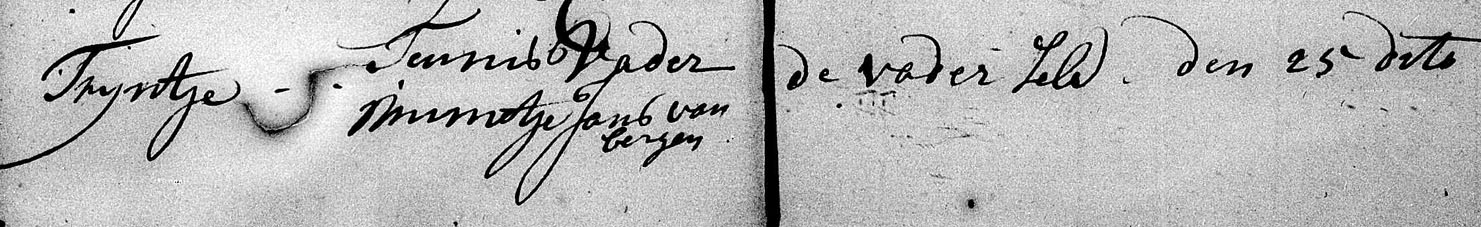 Tryntje
Teunis Vader
Muintje Jans van
bergen
de vader Zelv. den 25 dito